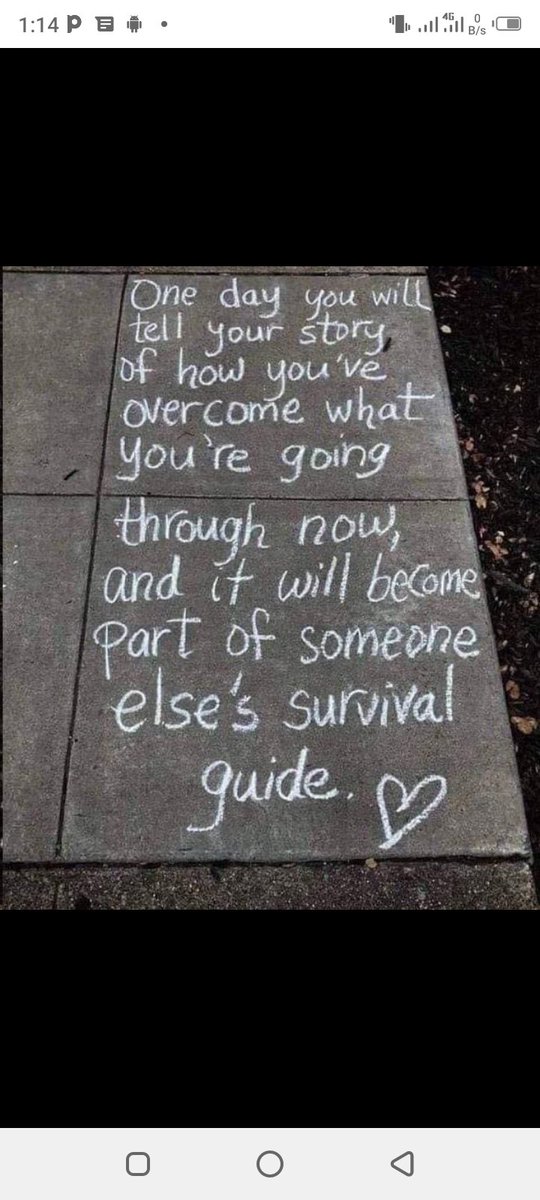 1:14
4G
0
B/s
One day you will
tell your story
of how you've
overcome what
you're going
through now,
and it will become
part of someone
else's survival
guide.